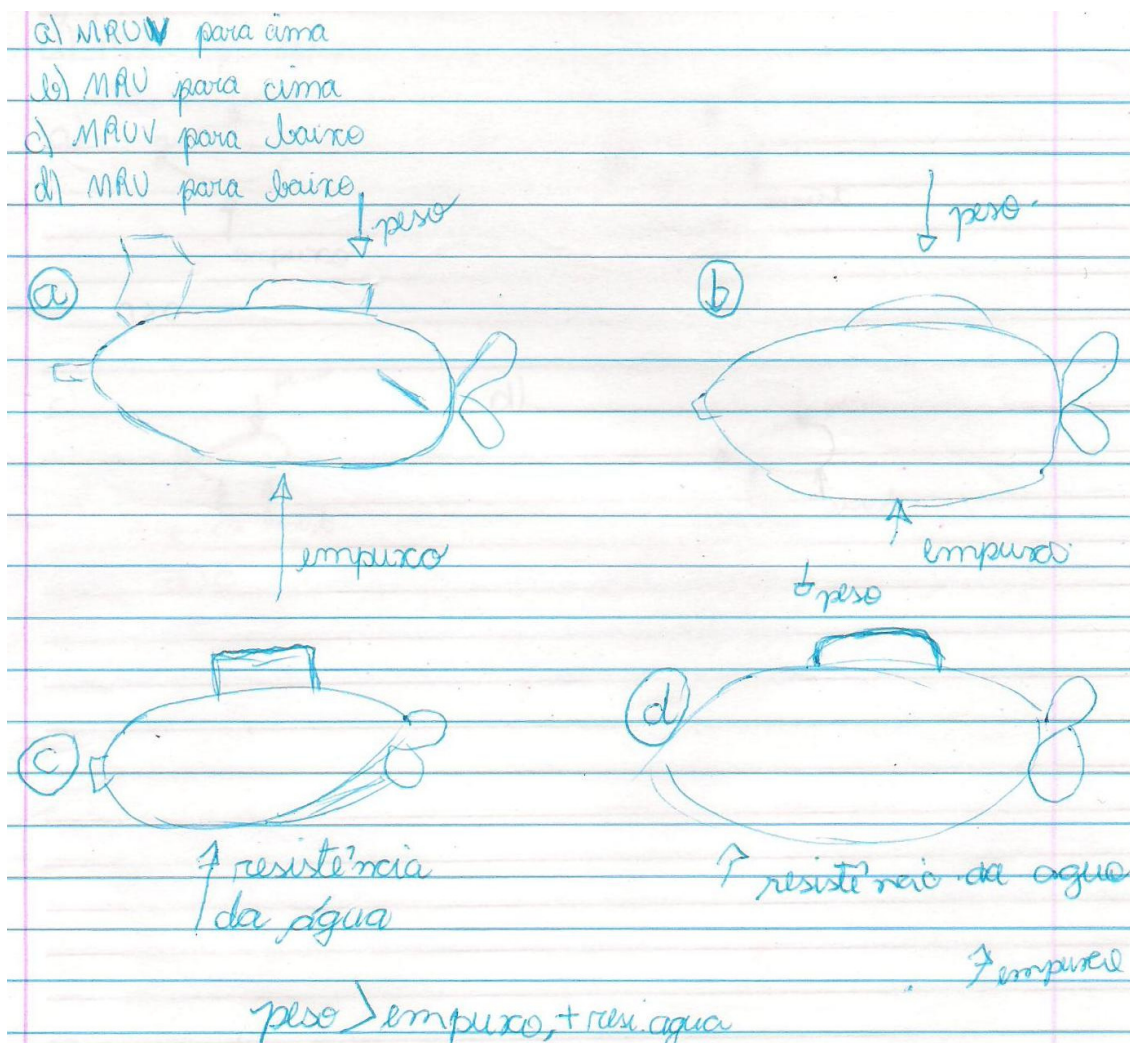 a) MRUV para cima
b) MRU para cima
c) MRUV para baixo
d) MRU para baixo
peso
peso
a
b
empuxo
empuxo
peso
c
d
resistência
da água
resistência da agua
empuxo
peso > empuxo, + resi. agua